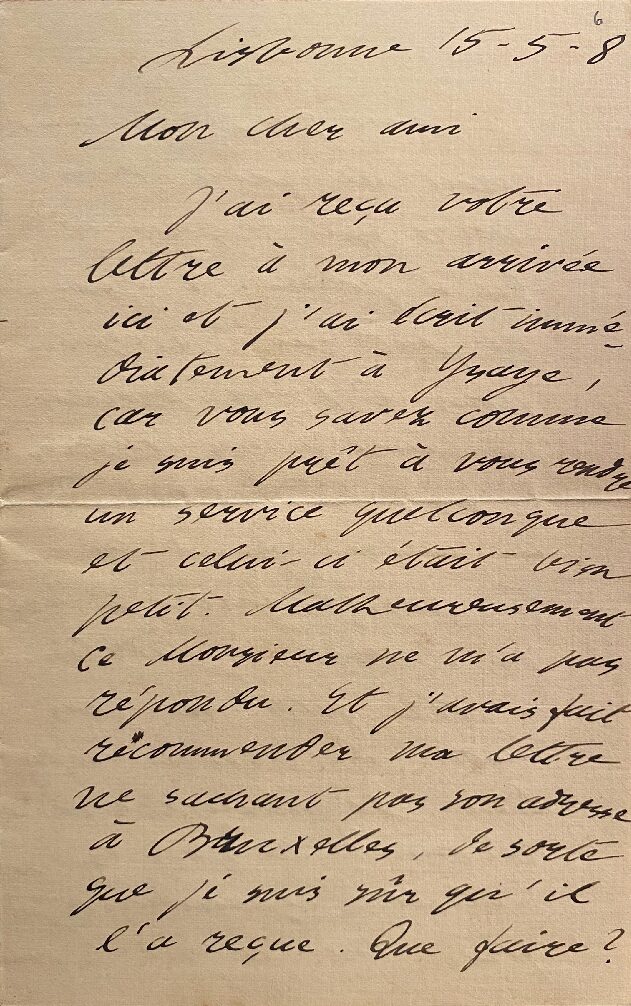 6
Lisbonne 15-5-8
Mon cher ami
J'ai reçu votre
lettre à mon arrivée
ici et j'ai écrit immé-
diatement à Ysaye,
car vous savez comme
je suis prêt à vous rendre
un service quelconque
et celui-ci était bien
petit. Malheureusement
ce Monsieur ne m'a pas
répondu. Et j'avais fait
recommender ma lettre
ne sachant pas son adresse
à Bruxelles, de sorte
que je suis sûr qu'il
l'a reçue. Que faire?